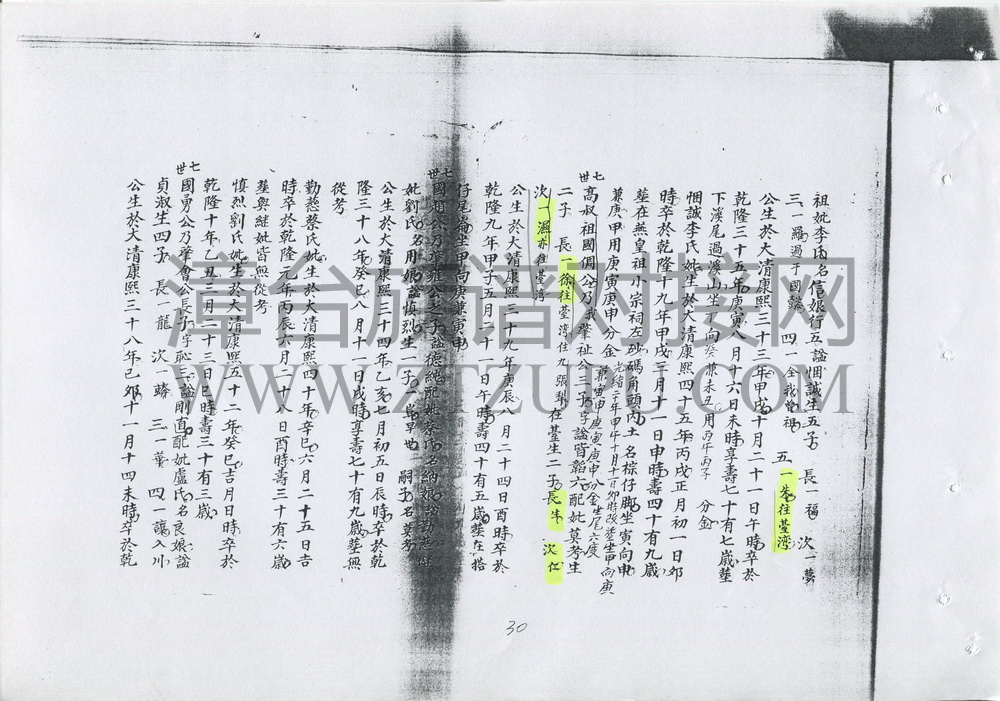 祖妣李內名信娘行五謚悃誠生五子 長一福 次一夢
三一羅過于國 四一全我曾祖 五一 往臺灣
公生於大清康熙三十三年甲戌十月二十一日午時卒於
乾隆三十五年庚寅八月十六日未時享壽七十有七歲塟
下溪尾過溪山坐丁向癸兼未丑用丙午丙子 分金
悃誠李氏妣生於大清康熙四十五年丙戌正月初一日夘
時卒於乾隆十九年甲戌三月十一日申時壽四十有九歲
塟在無皇祖小宗祠左砂碼角頭內土名棕仔脚坐寅向申
兼庚甲用庚寅庚申分金 光緒二十年甲午十月十一日夘時改塟坐甲向庚
兼寅申庚寅庚申分金坐尾六度
七世高叔祖國 公乃我肇祉公三子字 謚皆韜六配妣莫考生
二子 長一徐往臺灣住九張犁在臺生二子長生 次仁
次一濕亦往臺灣
公生於大清康熙三十九年庚辰八月二十四日酉時卒於
乾隆九年甲子五月二十一日午時壽四十有五歲塟在搭
仔尾崙坐甲向庚兼寅申
七世國 公乃肇雍公之子謚德純配妣蔡氏名納娘謚勤慈生
妣劉氏名用娘謚慎烈生一子 一爲早世 嗣子名莫考
公生於大清康熙三十四年乙亥七月初五日辰時卒於乾
隆三十八年癸巳八月十一日戌時享壽七十有九歲塟無
從考
勤慈蔡氏妣生於大清康熙四十年辛巳六月二十五日吉
時卒於乾隆元年丙辰六月二十八日酉時壽三十有六歲
塟與継妣皆無從考
慎烈劉氏妣生於大清康熙五十二年癸巳吉月日時卒於
乾隆十年乙丑三月二十三日巳時壽三十有三歲
七世國勇公乃肇會公長子字恥 謚剛直配妣盧氏名良娘謚
貞淑生四子 長一龍 次一騎 三一董 四一讓入川
公生於大清康熙三十八年己夘十一月十四未時卒於乾
30
漳台族譜对接网
WWW.ZTZUPU.COM